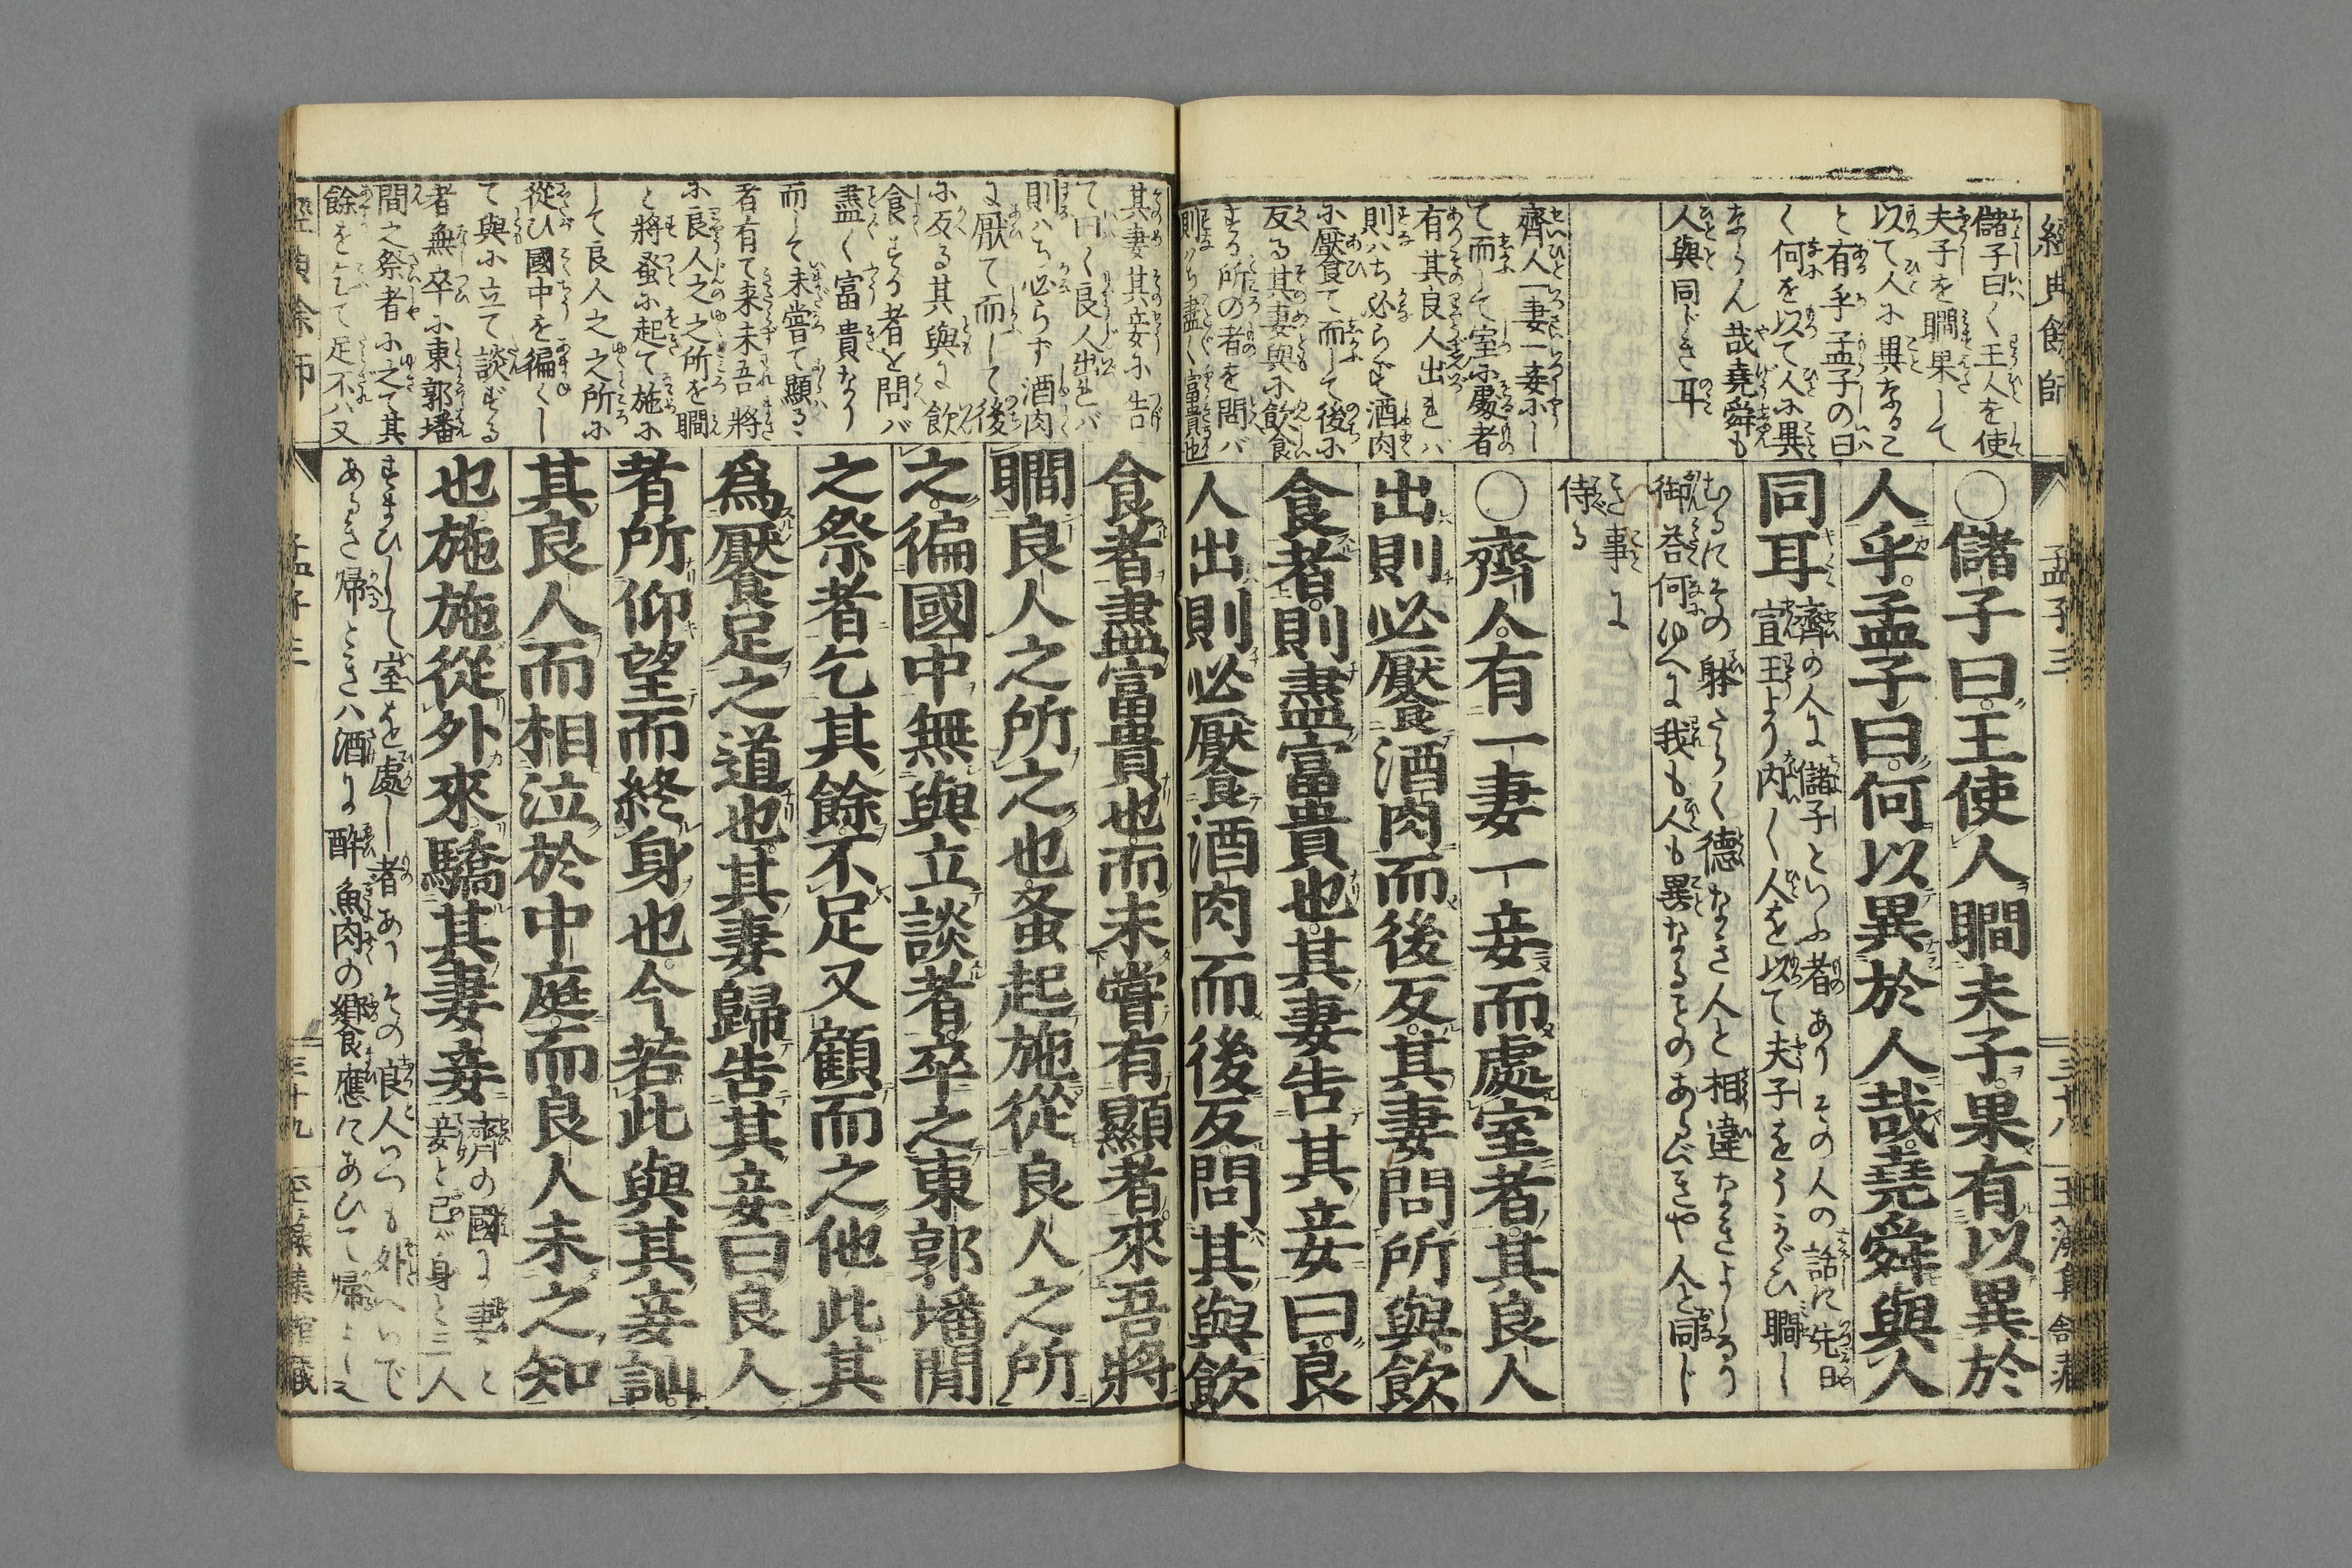 經典餘師
孟子三
三十八
儲子曰く王人を使
夫子を瞯果して
以て人に異なるこ
と有乎孟子の曰
く何を以て人に異
ならん哉堯舜も
人與同じき耳
○儲子曰王使人瞯夫子果有以異於
人乎孟子曰何以異於人哉堯舜與人
同耳
齊の人に儲子といふ者ありその人の話に先日
宣王より内〳〵人を以て夫子をうかゞひ瞯し
むるにその躰たらく徳なき人と相違なきよしなり
御答何ゆへに我も人も異なることのあるべきや人と同じ
き事に
侍る
齊人一妻一妾にし
て而して室に處者
有其良人出れバ
則ハち必らず酒肉
に饜て而して後に
反る其妻與に飮食
する所の者を問バ
則ハち盡く富貴也
○齊人有一妻一妾而處室者其良人
出則必饜酒肉而後反其妻問所與飮
食者則盡富貴也其妻告其妾曰良
人出則必饜酒肉而後反問其與飮
其妻其妾に告
て曰く良人出れバ
則ハち必らず酒肉
に厭て而して後
に反る其與に飮
食する者を問バ
盡く富貴なり
而して未嘗て顯る
者有て来未吾將
に良人之之所を瞯
と將蚤に起て施に
して良人之之所に
從ひ國中を徧くし
て與に立て談ずる
者無卒に東郭墦
間之祭者に之て其
餘を乞て足不バ又
食者盡富貴也而未嘗有顯者來吾將
瞯良人之所之也蚤起施從良人之所
之徧國中無與立談者卒之東郭墦閒
之祭者乞其餘不足又顧而之他此其
爲饜足之道也其妻歸告其妾曰良人
者所仰望而終身也今若此與其妾訕
其良人而相泣於中庭而良人未之知
也施施從外來驕其妻妾
齊の國に妻と
妾と己が身と三人
すまひして室を處し者ありその良人いつも外へいで
あるき帰とき八酒に酔魚肉の饗應にあひて帰よしに
經典餘師
孟子三
三十九